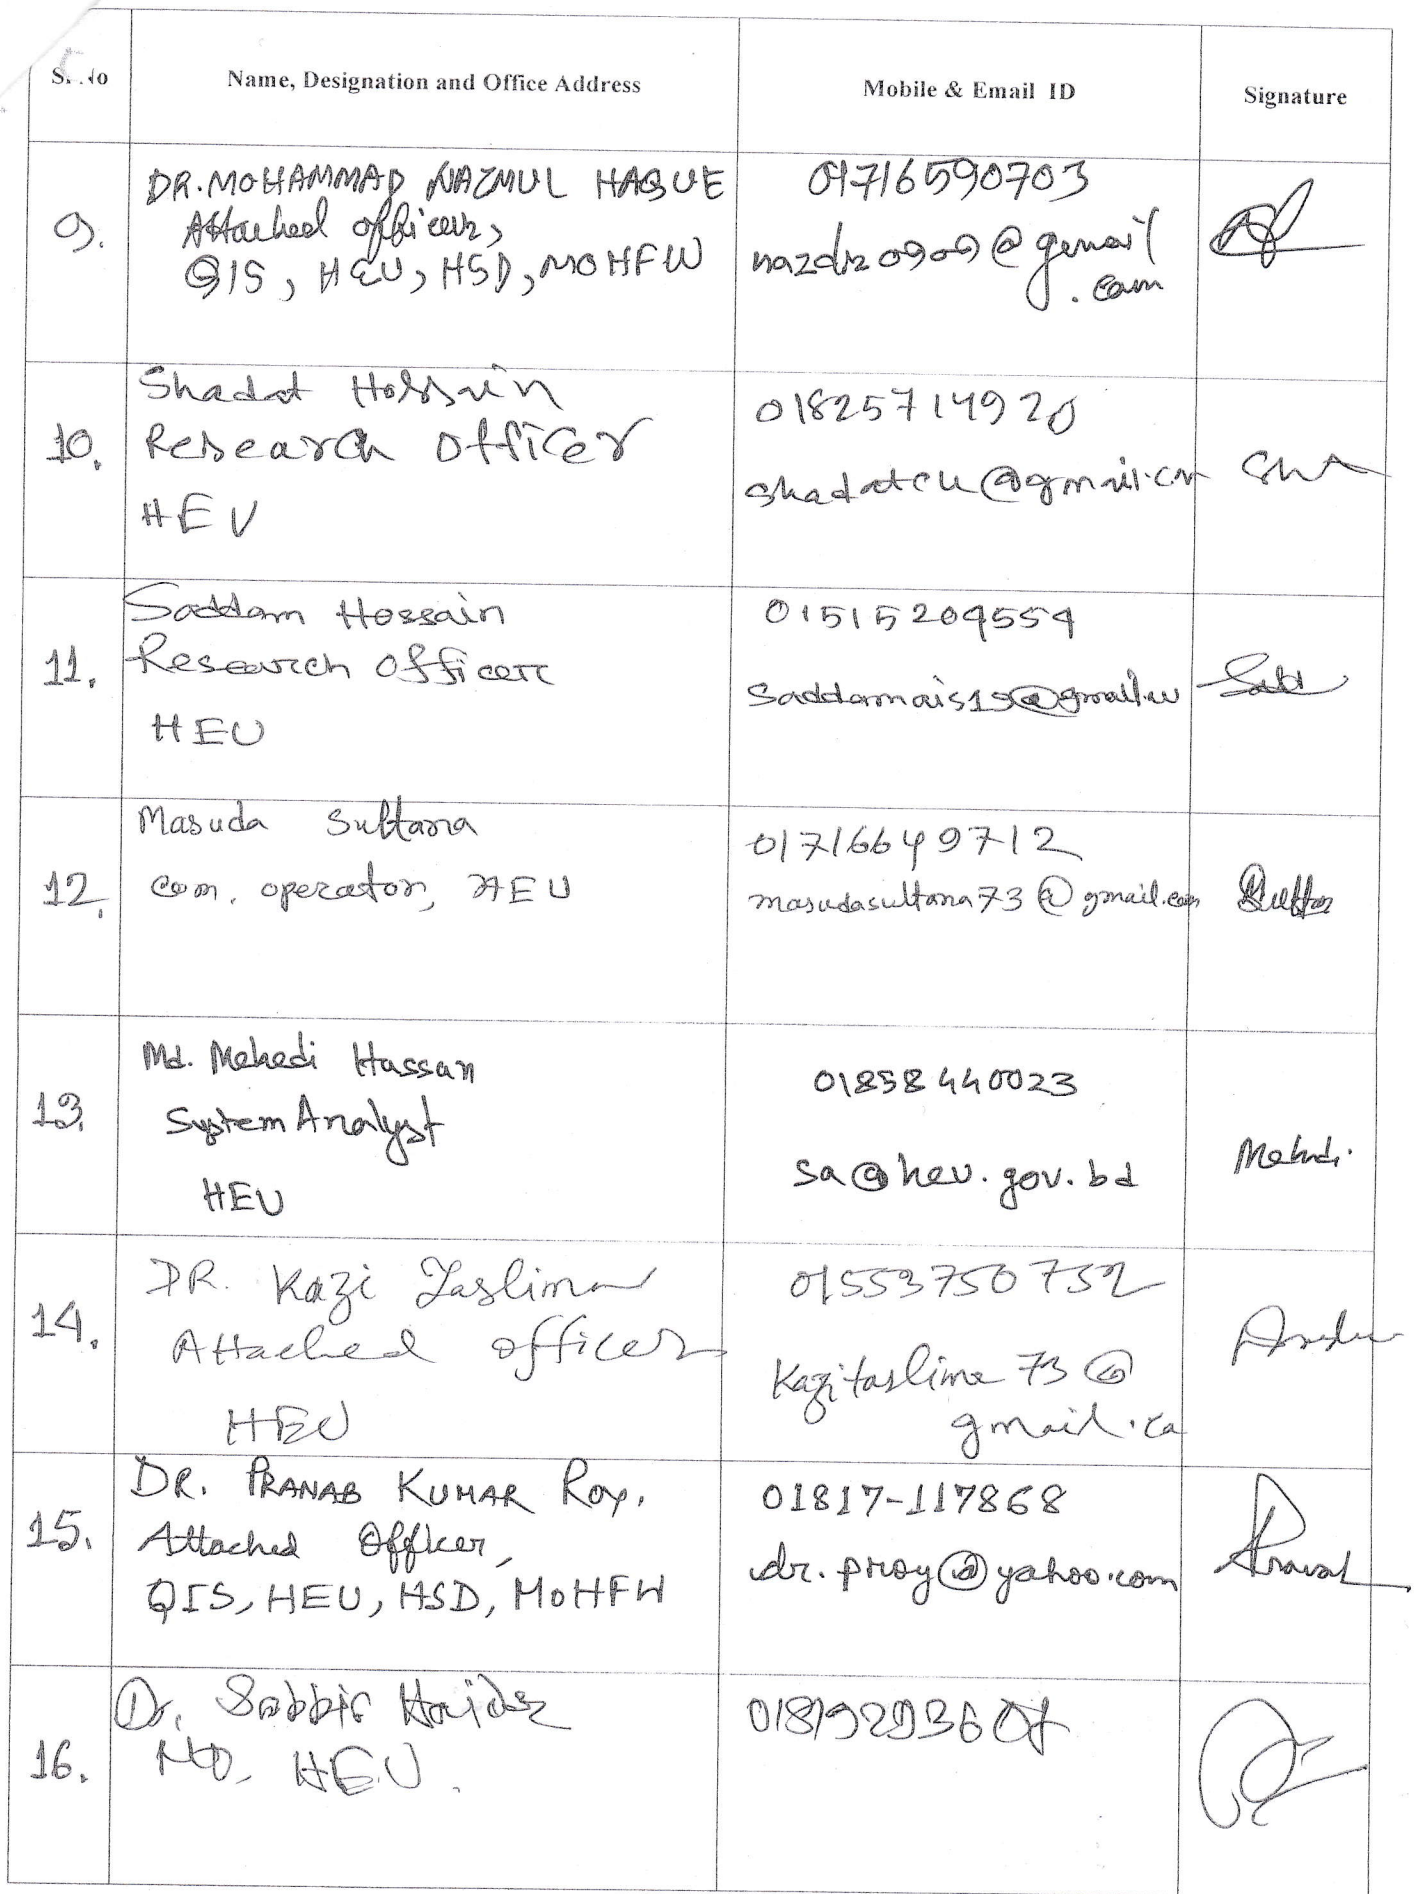 Name, Designation and Office Address
Mobile & Email ID
Signature
9.
DR. MOHAMMAD NAZMUL HAQUE
Attached officer,
QIS, HEU, HSD, MOHFW
01716590703
nazdr0909@gmail
.com
10.
Shadat Hossain
Research Officer
HEU
01825714920
shadatcu@gmail.com
11.
Saddam Hossain
Research officer
HEU
01515209554
12.
Masuda Sultana
Com. operator, HEU
01716649712
masudasultana73@gmail.com
13.
Md. Mehedi Hassan
System Analyst
HEU
01858440023
sa@heu.gov.bd
Mehedi.
14.
DR. Kazi Taslima
Attached officer
HEU
01553750732
Kazitaslima73@
gmail.co
15.
DR. PRANAB KUMAR Roy.
Attached Officer,
QIS, HEU, HSD, MoHFW
01817-117868
dr.proy@yahoo.com
Pranab
16.
Dr. Sabbir Haider
HEU.